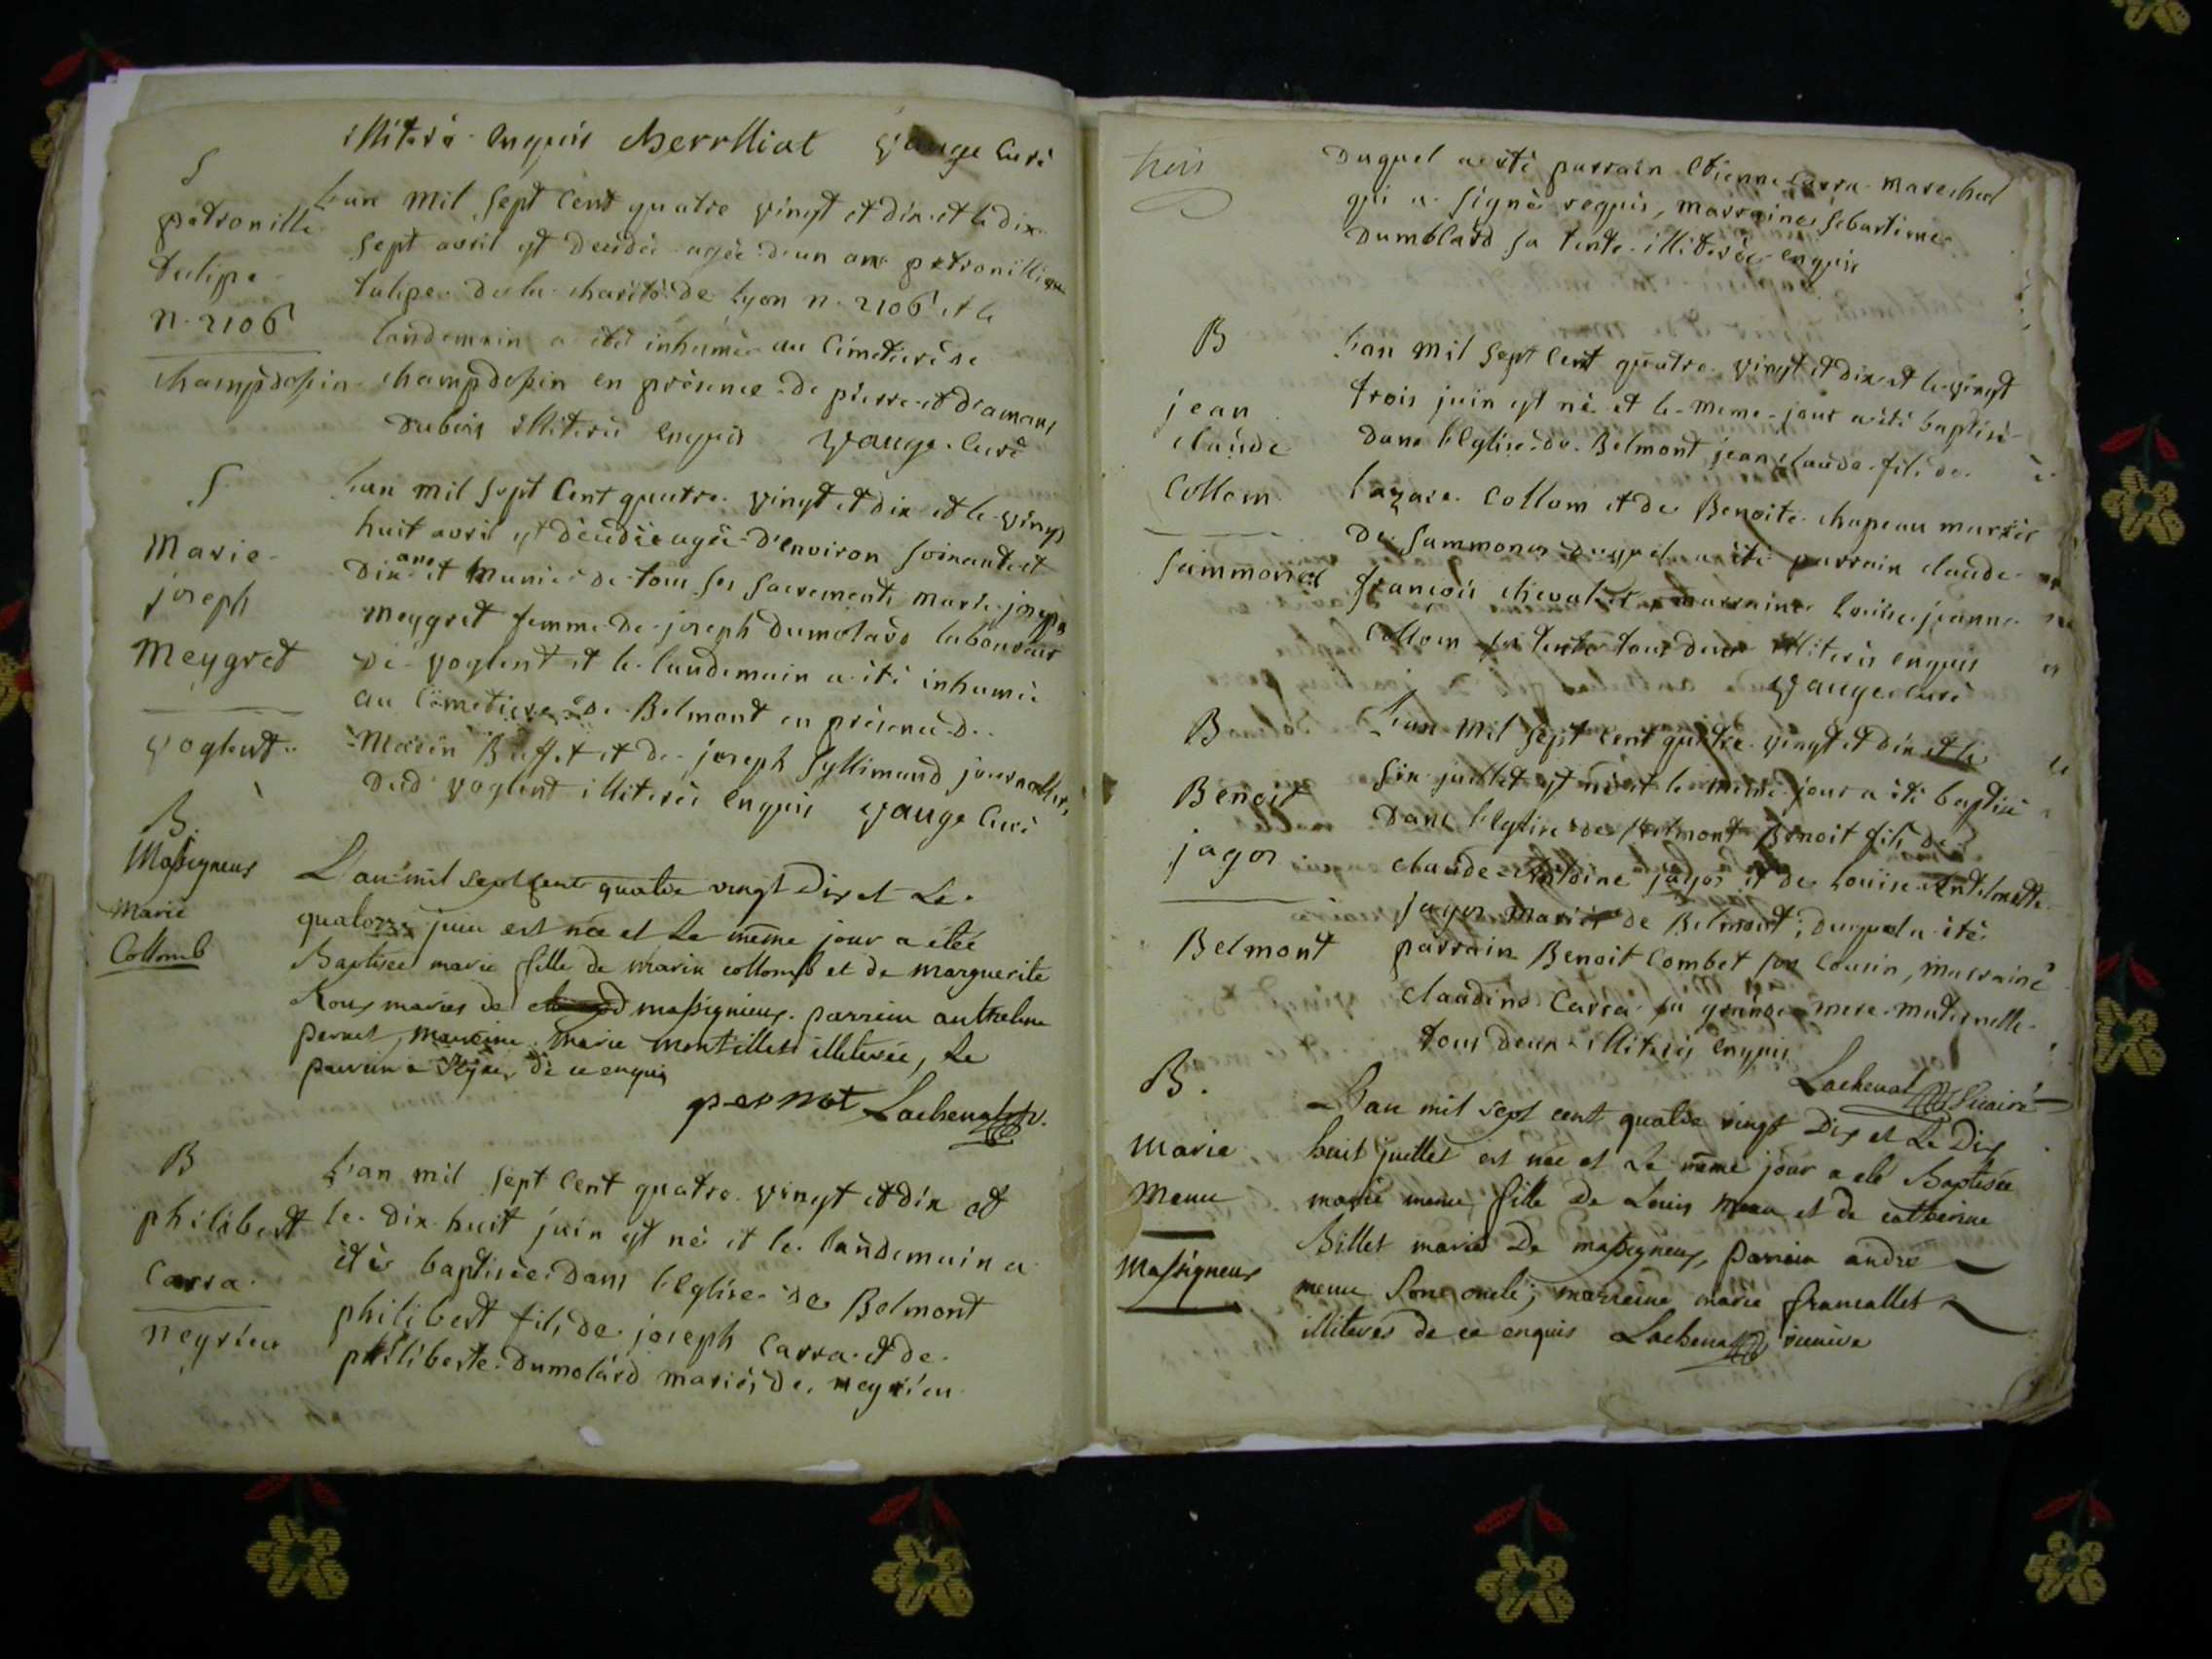 illiteré enquis Merrlliat Vauge Curé
S
petronille
tulipe
n. 2106
champdossin
L'an mil sept Cent quatre vingt et dix et le dix
sept avril est décédée agée d'un an petronille
tulipe de la charité de Lyon n. 2106 et le
landemain a été inhumée au Cimetière de
champdossin en présence de pierre et d'amans
Dubois illiterés enquis Vauge Curé
S
Marie
joseph
Meygret
Voglent
L'an mil sept Cent quatre vingt et dix et le vingt
huit avril est décédée agée d'environ soixante et
dix ans et Munie de tous ses sacrements marie joseph
meygret femme de joseph dumolard laboureur
de voglent et le landemain a été inhumée
au Cimetière de Belmont en présence de
Buffet et de joseph Syllimand journallier,
dud voglent illiterés enquis Vauge Curé
B.
Massigneux
Marie
Collomb
L'an mil sept cent quatre vingt dix et Le
quatorze juin est née et Le même jour a étéé
Baptisée marie fille de marin collomb et de marguerite
Roux mariés de massignieux. parrein anthelme
pernet, marreine marie montillet illeterée, Le
parrein a signé de ce enquis
pernot Lachenal v.
B
philibert
Carra
neyrieu
L'an mil sept Cent quatre vingt et dix et
le dix huit juin est né et le landemain a
été baptisée dans l'Eglise de Belmont
philibert fils de joseph Carra et de
philiberte Dumolard mariés de neyrieu
trois
Duquel a été parrain Etienne Carra marechal
qui a signé requis, marraine sebastienne
Dumolard sa tente illiterée enquise
B
jean
claude
Collom
Sammonod
L'an mil sept Cent quatre vingt et dix et le vingt
trois juin est né et le meme jour a été baptisé
dans l'Eglise de Belmont jean claude fils de
Lazare Collom et de Benoite chapeau mariés
de Sammonod duquel a été parrain claude
françois chevalier, marraine Louise jeanne
Collom sa tente tous deux illiterés enquis
Vauge Curé
B
Benoit
jagor
Belmont
L'an mil sept Cent quatre vingt et dix et le
six juillet est né et le même jour a été baptisé
dans l'Eglise de Belmont Benoit fils de
claude Antoine jagor et de Louise Anthelmette
jagor mariés de Belmont, duquel a été
parrain Benoit Combet son Cousin, marraine
claudine Carra sa grande mere maternelle
tous deux illiterés enquis
Lachenal vicaire
B.
Marie
Menu
Massigneux
L'an mil sept cent quatre vingt Dix et Le Dix
huit juillet est née et Le même jour a été Baptisée
marie menu, fille De Louis menu et de catherine
Billet mariés De massigneux, parrein andré
menu Son oncle, marreine marie francallet
illiterés de ce enquis Lachenal vicaire